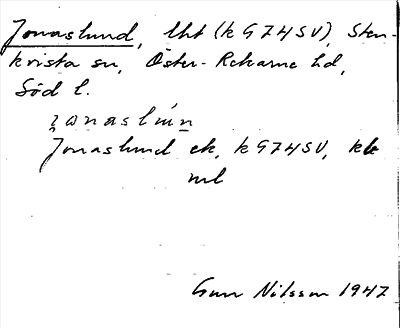 Jonaslund, lht (k G74SV), Sten-
kvista sn, Öster-Rekarne hd,
Söd l.
Jonaslund ek, k G74SV, kk
ml
Gun Nilsson 1947